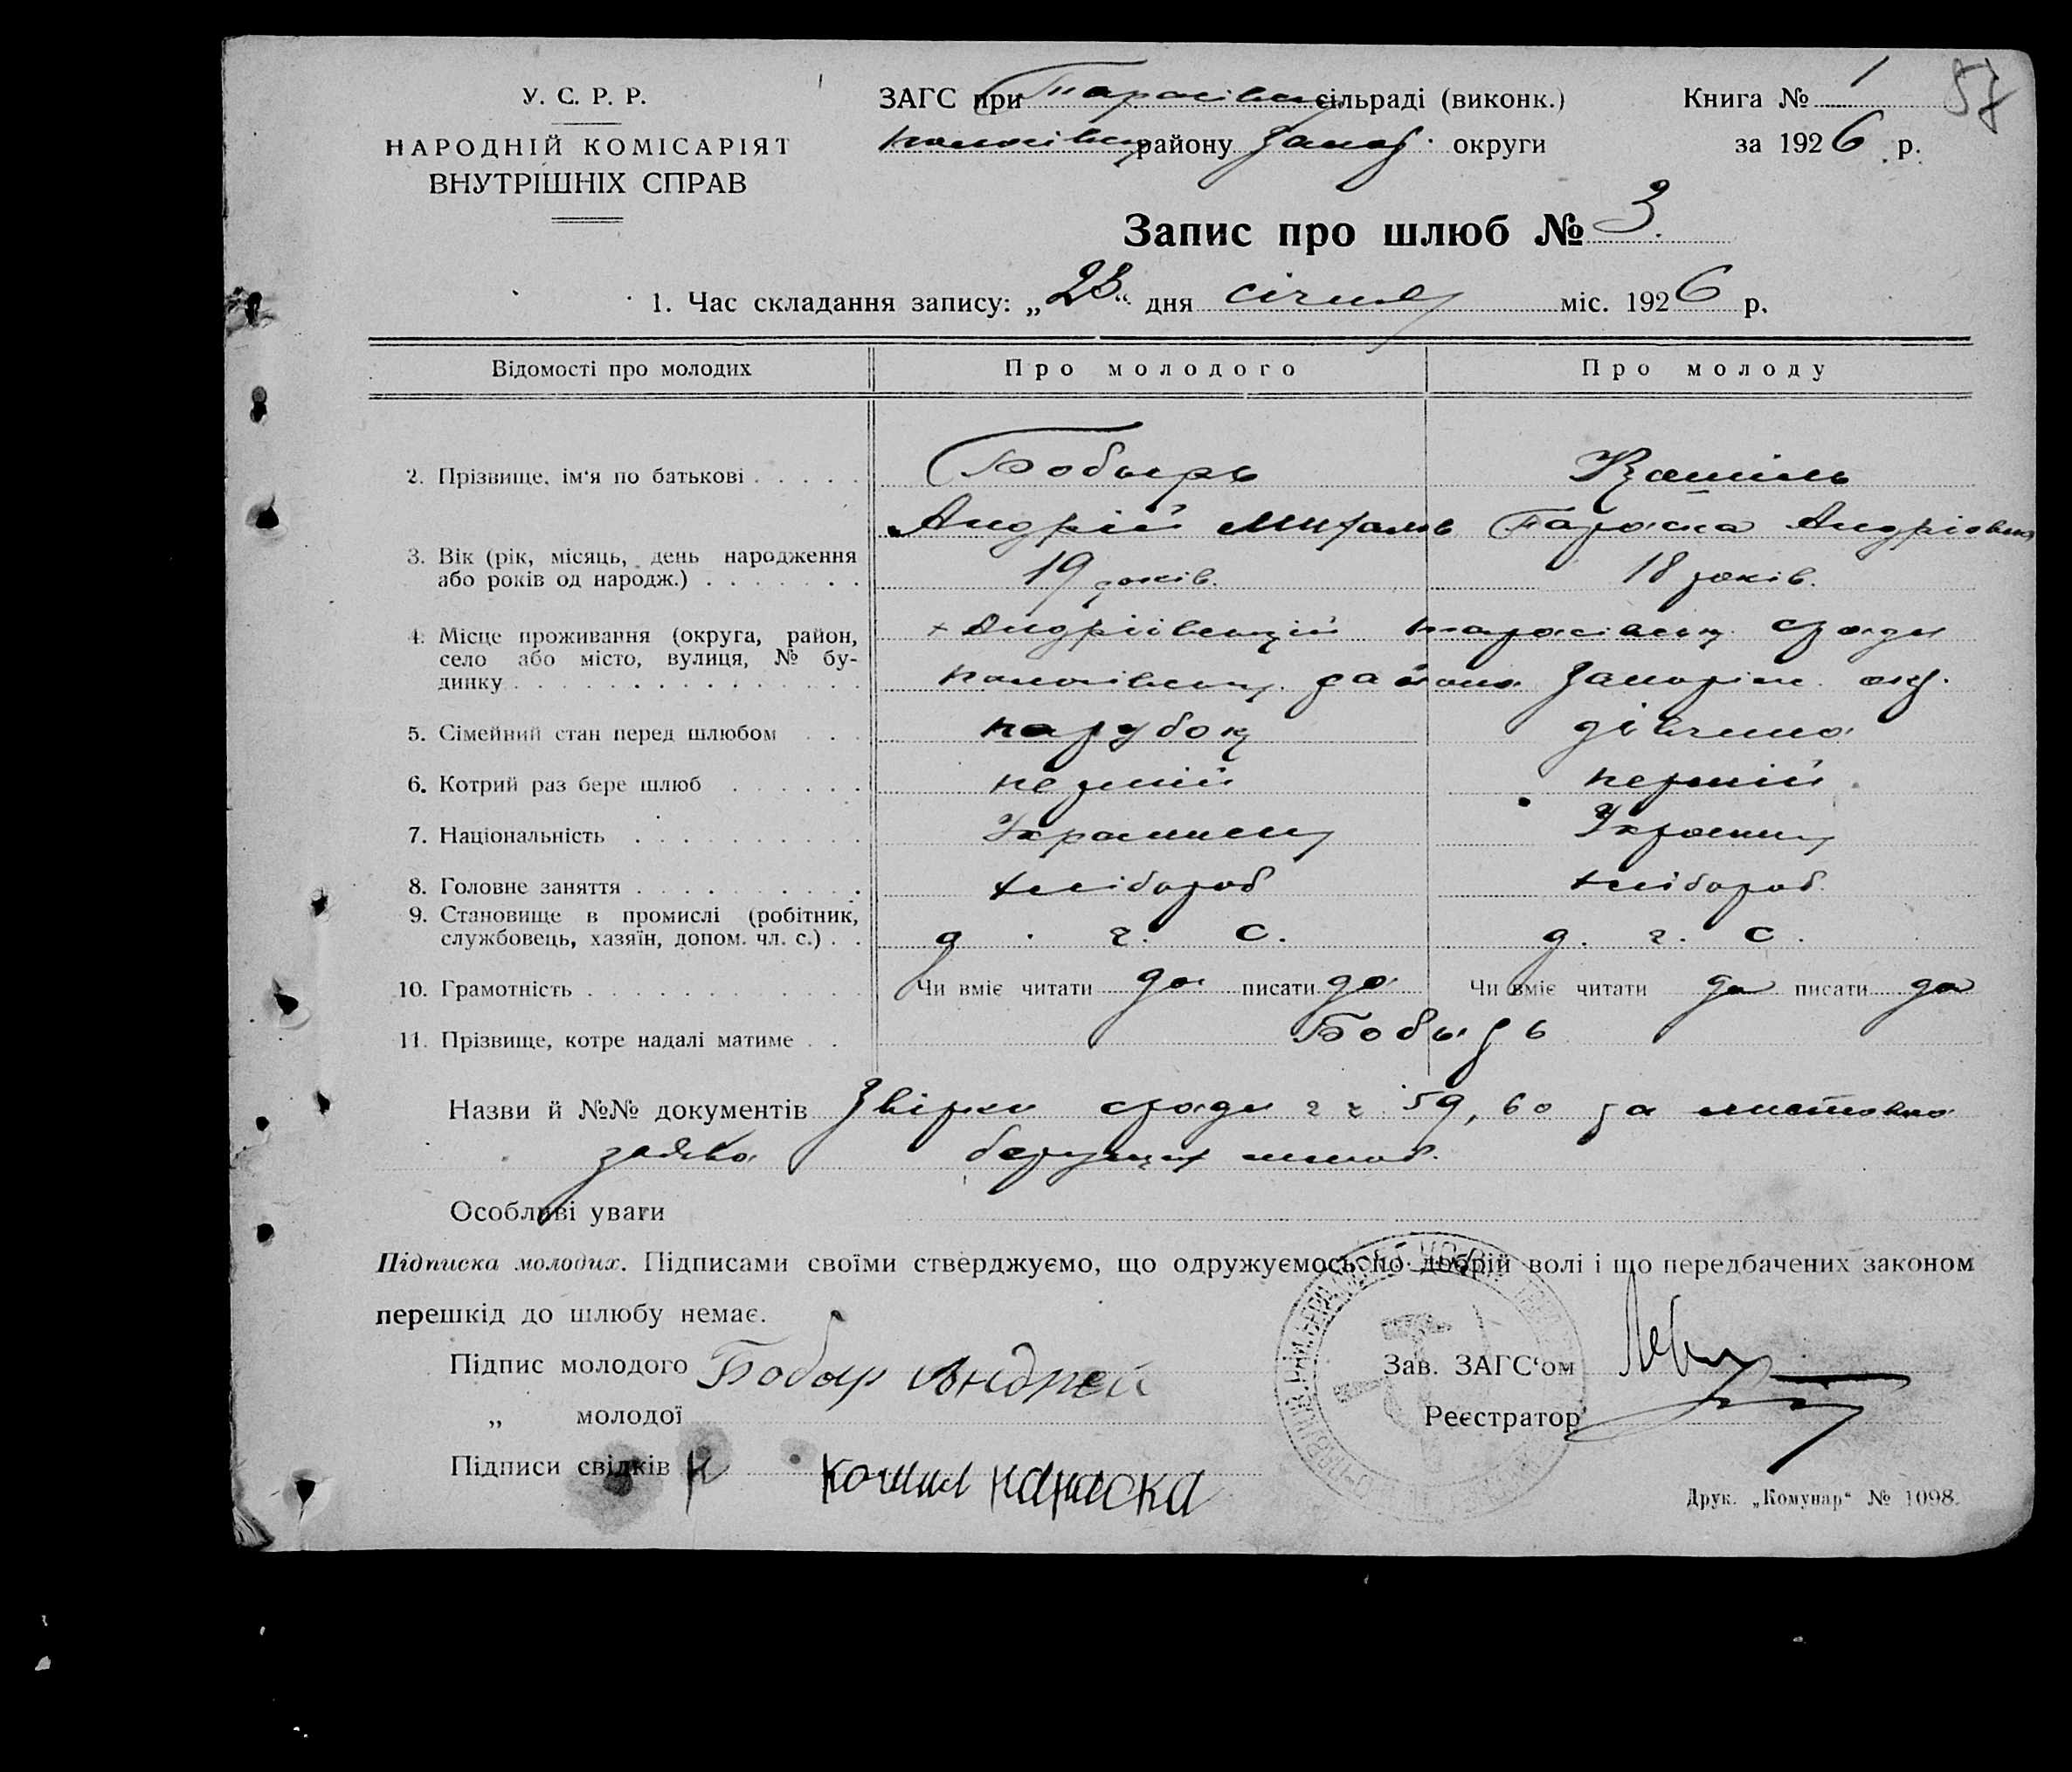 57
У. С. Р. Р.
НАРОДНІЙ КОМІСАРІЯТ
ВНУТРІШНІХ СПРАВ
ЗАГС при Тарасівськ сільраді (виконк.)
Пологівськ району Запор. округи
Книга № 1
за 1926 р.
Запис про шлюб № 3.
1. Час складання запису: „23“ дня січня міс. 1926 р.
Відомості про молодих Про молодого Про молоду
2. Прізвище, ім‘я по батькові Бобырь Кошіль
Андрій Михалов Параска Андріовна
3. Вік (рік, місяць, день народження
або років од народж.) 19 років. 18 років.
4. Місце проживання (округа, район,
село або місто, вулиця, № бу-
динку
х Андріівський тарасівськ. сради
пологівськ. района Запоріж. окр.
5. Сімейний стан перед шлюбом парубок дівчина
6. Котрий раз бере шлюб перший перший
7. Національність Украинец Украин
8. Головне заняття хлібороб хлібороб
9. Становище в промислі (робітник,
службовець, хазяїн, допом. чл. с.) д. ч. с. д. ч. с.
10. Грамотність Чи вміє читати да писати да Чи вміє читати да писати да
11. Прізвище, котре надалі матиме Бобырь
Назви й №№ документів Звірки сради чч 59, 60 та
заява берущих шлюб.
Особливі уваги
Підписка молодих. Підписами своїми стверджуємо, що одружуємось по добрій волі і що передбачених законом
перешкід до шлюбу немає.
Підпис молодого Бобыр Андрей
„ молодої
Підписи свідків К Кошил Параска
Зав. ЗАГС‘ом
Реєстратор
Друк. „Комунар“ № 1098.